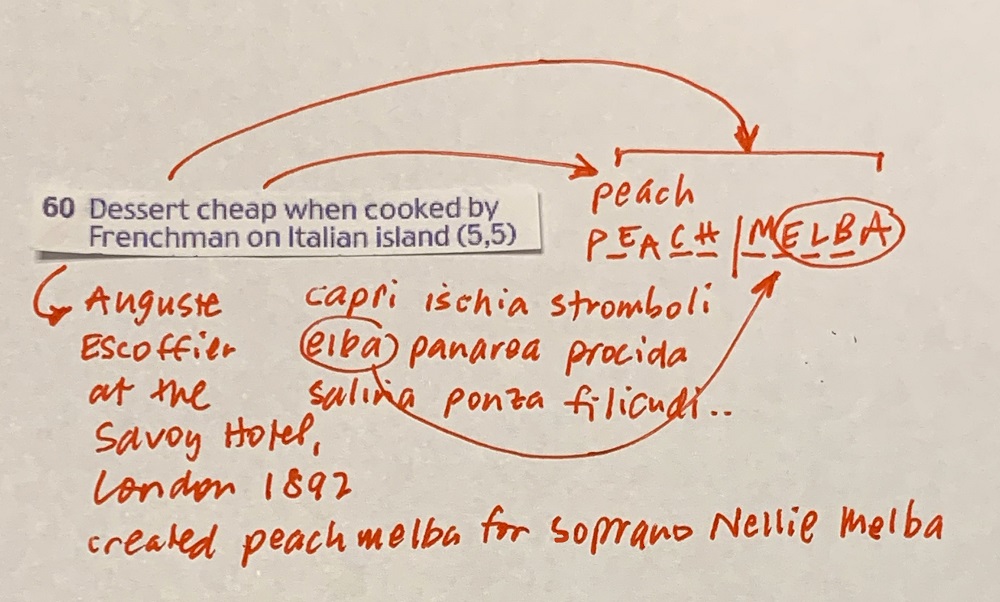 60 Dessert cheap when cooked by
Frenchman on Italian island (5,5)
peach
PEACH | MELBA
Auguste
Escoffier
at the
Savoy Hotel,
London 1892
created peach melba for soprano Nellie Melba
capri ischia stromboli
elba panarea procida
salina ponza filicudi..